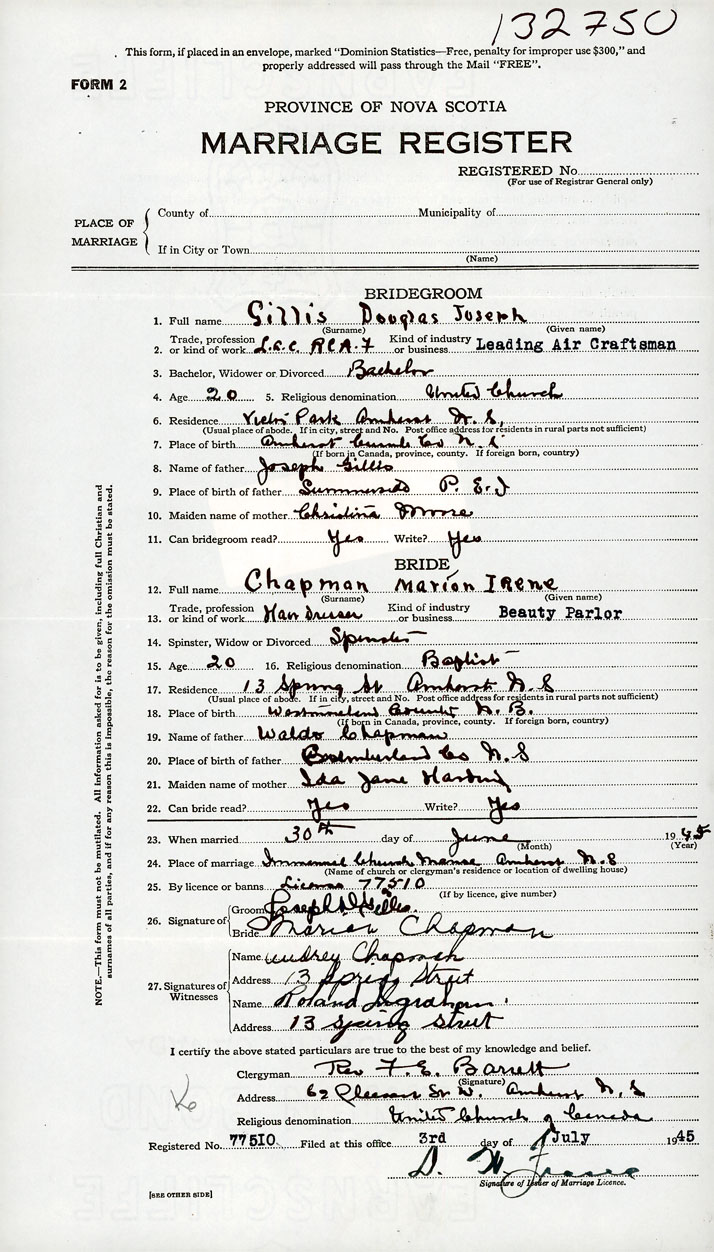 132750
This form, if placed in an envelope, marked "Dominion Statistics—Free, penalty for improper use $300," and
properly addressed will pass through the Mail "FREE".
FORM 2
PROVINCE OF NOVA SCOTIA
MARRIAGE REGISTER
REGISTERED No.
(For use of Registrar General only)
PLACE OF MARRIAGE
County of Municipality of
If in City or Town
(Name)
BRIDEGROOM
1. Full name Gillis Douglas Joseph
(Surname) (Given name)
2. Trade, profession or kind of work L.a.c. RCA.F Kind of industry or business Leading Air Craftsman
3. Bachelor, Widower or Divorced Bachelor
4. Age 20 5. Religious denomination United Church
6. Residence Park Amherst N.S.
(Usual place of abode. If in city, street and No. Post office address for residents in rural parts not sufficient)
7. Place of birth Amherst Co N.S.
(If born in Canada, province, county. If foreign born, country)
8. Name of father Joseph Gillis
9. Place of birth of father Summerside P.E.I
10. Maiden name of mother Christina
11. Can bridegroom read? Yes Write? Yes
BRIDE
12. Full name Chapman Marion Irene
(Surname) (Given name)
13. Trade, profession or kind of work Hairdresser Kind of industry or business Beauty Parlor
14. Spinster, Widow or Divorced Spinster
15. Age 20 16. Religious denomination Baptist
17. Residence 13 Spring St Amherst N.S
(Usual place of abode. If in city, street and No. Post office address for residents in rural parts not sufficient)
18. Place of birth Westmorland County N.B.
(If born in Canada, province, county. If foreign born, country)
19. Name of father Waldo Chapman
20. Place of birth of father Co N.S
21. Maiden name of mother Ida Jane Harding
22. Can bride read? Yes Write? Yes
23. When married 30th day of June 1945
(Month) (Year)
24. Place of marriage Immanuel Church Manse Amherst N.S
(Name of church or clergyman's residence or location of dwelling house)
25. By licence or banns License 77510
(If by licence, give number)
26. Signature of Groom Joseph D Gillis.
Bride Marion Chapman
27. Signatures of Witnesses
Name Audrey Chapman
Address 13 Spring Street
Name Roland Ingraham
Address 13 Spring Street
I certify the above stated particulars are true to the best of my knowledge and belief.
Clergyman Rev F. E. Barrett
(Signature)
Address 62 St. W. Amherst N.S
Religious denomination United Church of Canada
Registered No. 77510 Filed at this office 3rd day of July 1945
D. W.
Signature of Issuer of Marriage Licence.
[SEE OTHER SIDE]
NOTE.—This form must not be mutilated. All information asked for is to be given, including full Christian and
surnames of all parties, and if for any reason this is impossible, the reason for the omission must be stated.